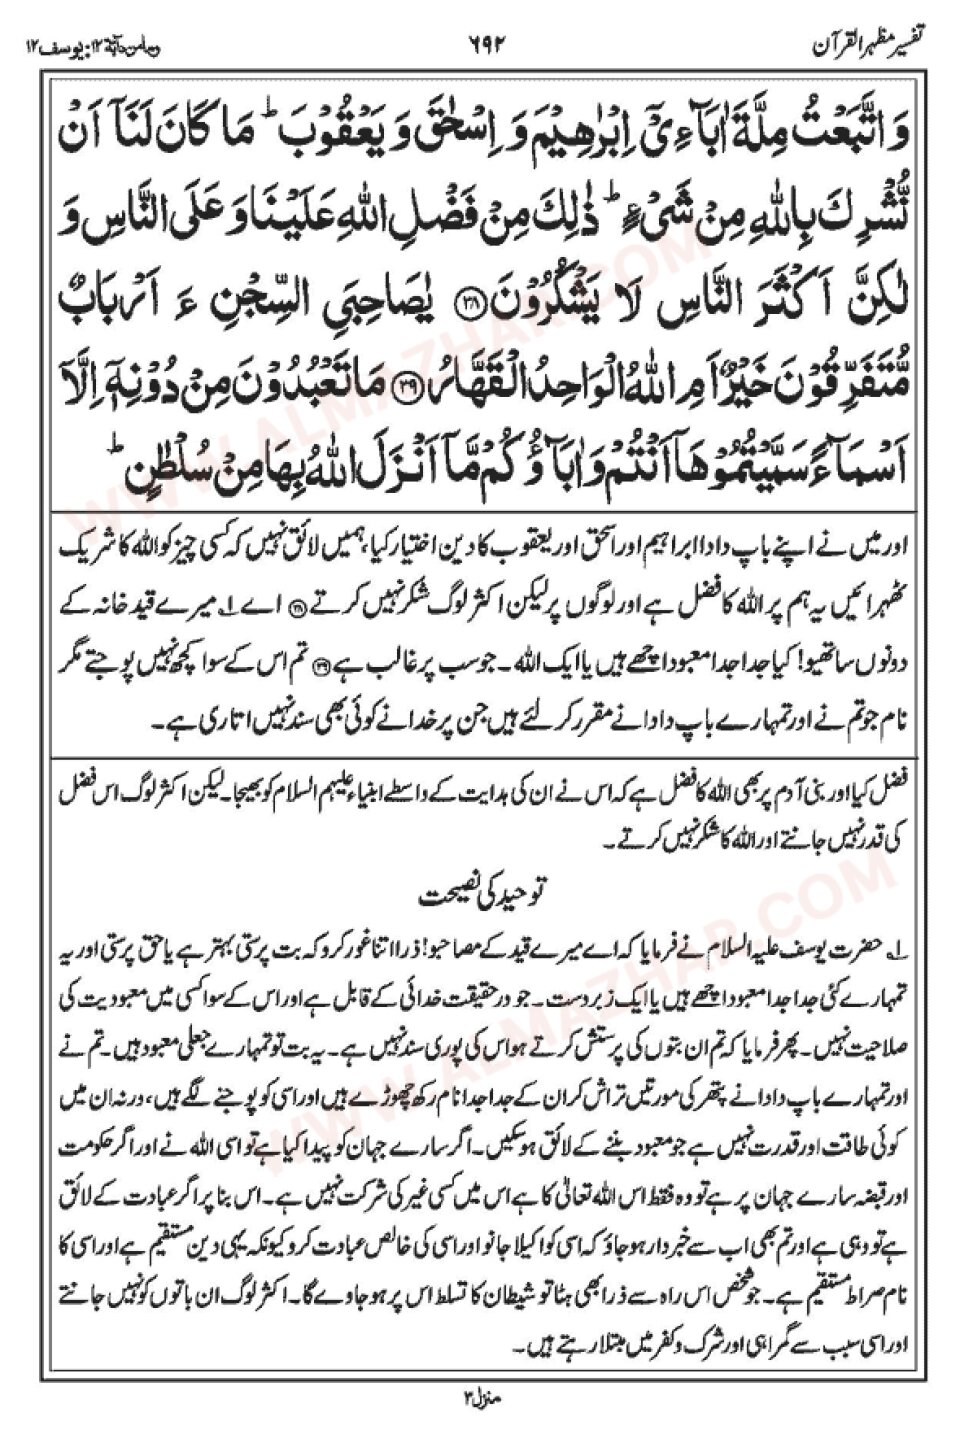 تفسیر مظہر القرآن
۶۹۲
یوسف ۱۲
وَ اتَّبَعْتُ مِلَّةَ اٰبَآءِیْۤ اِبْرٰهِیْمَ وَ اِسْحٰقَ وَ یَعْقُوْبَ ؕ مَا كَانَ لَنَاۤ اَنْ
نُّشْرِكَ بِاللّٰهِ مِنْ شَیْءٍ ؕ ذٰلِكَ مِنْ فَضْلِ اللّٰهِ عَلَیْنَا وَ عَلَى النَّاسِ وَ
لٰكِنَّ اَكْثَرَ النَّاسِ لَا یَشْكُرُوْنَ ﴿۳۸﴾ یٰصَاحِبَیِ السِّجْنِ ءَ اَرْبَابٌ
مُّتَفَرِّقُوْنَ خَیْرٌ اَمِ اللّٰهُ الْوَاحِدُ الْقَهَّارُ ﴿۳۹﴾ مَا تَعْبُدُوْنَ مِنْ دُوْنِهٖۤ اِلَّاۤ
اَسْمَآءً سَمَّیْتُمُوْهَاۤ اَنْتُمْ وَ اٰبَآؤُكُمْ مَّاۤ اَنْزَلَ اللّٰهُ بِهَا مِنْ سُلْطٰنٍ ؕ
اور میں نے اپنے باپ دادا ابراہیم اور اسحٰق اور یعقوب کا دین اختیار کیا، ہمیں لائق نہیں کہ کسی چیز کو اللہ کا شریک
ٹھہرائیں یہ ہم پر اللہ کا فضل ہے اور لوگوں پر لیکن اکثر لوگ شکر نہیں کرتے ﴿۳۸﴾ اے ۱؎ میرے قید خانہ کے
دونوں ساتھیو! کیا جدا جدا معبود اچھے ہیں یا ایک اللہ ۔ جو سب پر غالب ہے ﴿۳۹﴾ تم اس کے سوا کچھ نہیں پوجتے مگر
نام جو تم نے اور تمہارے باپ دادا نے مقرر کر لئے ہیں جن پر خدا نے کوئی بھی سند نہیں اتاری ہے۔
فضل کیا اور بنی آدم پر بھی اللہ کا فضل ہے کہ اس نے ان کی ہدایت کے واسطے انبیاء علیہم السلام کو بھیجا۔ لیکن اکثر لوگ اس فضل
کی قدر نہیں جانتے اور اللہ کا شکر نہیں کرتے ۔
توحید کی نصیحت
۱؎ حضرت یوسف علیہ السلام نے فرمایا کہ اے میرے قید کے مصاحبو! ذرا اتنا غور کرو کہ بت پرستی بہتر ہے یا حق پرستی اور یہ
تمہارے کئی جدا جدا معبود اچھے ہیں یا ایک زبردست ۔ جو در حقیقت خدائی کے قابل ہے اور اس کے سوا کسی میں معبودیت کی
صلاحیت نہیں ۔ پھر فرمایا کہ تم ان بتوں کی پرستش کرتے ہو اس کی پوری سند نہیں ہے ۔ یہ بت تو تمہارے جعلی معبود ہیں ۔ تم نے
اور تمہارے باپ دادا نے پتھر کی مورتیں تراش کر ان کے جدا جدا نام رکھ چھوڑے ہیں اور اسی کو پوجنے لگے ہیں، ورنہ ان میں
کوئی طاقت اور قدرت نہیں ہے جو معبود بننے کے لائق ہو سکیں۔ اگر سارے جہان کو پیدا کیا ہے تو اسی اللہ نے اور اگر حکومت
اور قبضہ سارے جہان پر ہے تو وہ فقط اس اللہ تعالیٰ کا ہے اس میں کسی غیر کی شرکت نہیں ہے۔ اس بنا پر اگر عبادت کے لائق
ہے تو وہی ہے اور تم بھی اب سے خبردار ہو جاؤ کہ اسی کو اکیلا جانو اور اسی کی خالص عبادت کرو کیونکہ یہی دین مستقیم ہے اور اسی کا
نام صراط مستقیم ہے۔ جو شخص اس راہ سے ذرا بھی ہٹا تو شیطان کا تسلط اس پر ہو جاوے گا۔ اکثر لوگ ان باتوں کو نہیں جانتے
اور اسی سبب سے گمراہی اور شرک و کفر میں مبتلا رہتے ہیں۔
منزل ۳
WWW.ALMAZHAR.COM
WWW.ALMAZHAR.COM